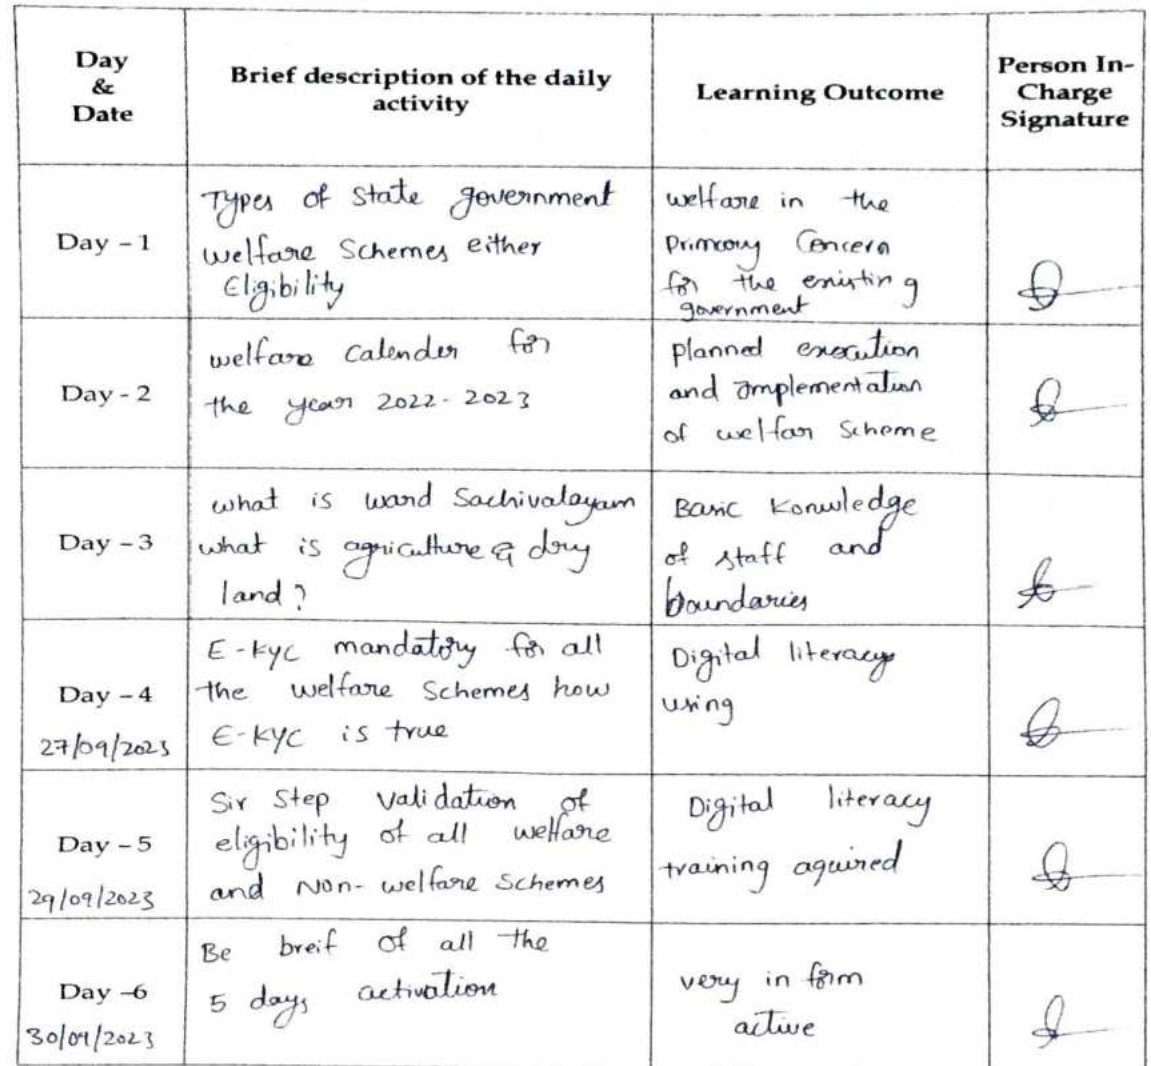 Day
&
Date
Brief description of the daily
activity
Learning Outcome
Person In-
Charge
Signature
Day - 1
Types of State government
welfare Schemes either
Eligibility
welfare in the
primary Concern
for the existing
government
Day - 2
welfare Calender for
the year 2022-2023
planned execution
and Implementation
of welfar Scheme
Day - 3
what is ward Sachivalayam
what is agriculture & dry
land?
Basic Konwledge
of staff and
boundaries
Day - 4
27/09/2023
E-kyc mandatory for all
the welfare Schemes how
E-KYC is true
Digital literacy
using
Day - 5
29/09/2023
Sir Step Validation of
eligibility of all welfare
and Non-welfare Schemes
Digital literacy
training aquired
Day -6
30/09/2023
Be breif of all the
5 days activation
very in form
active